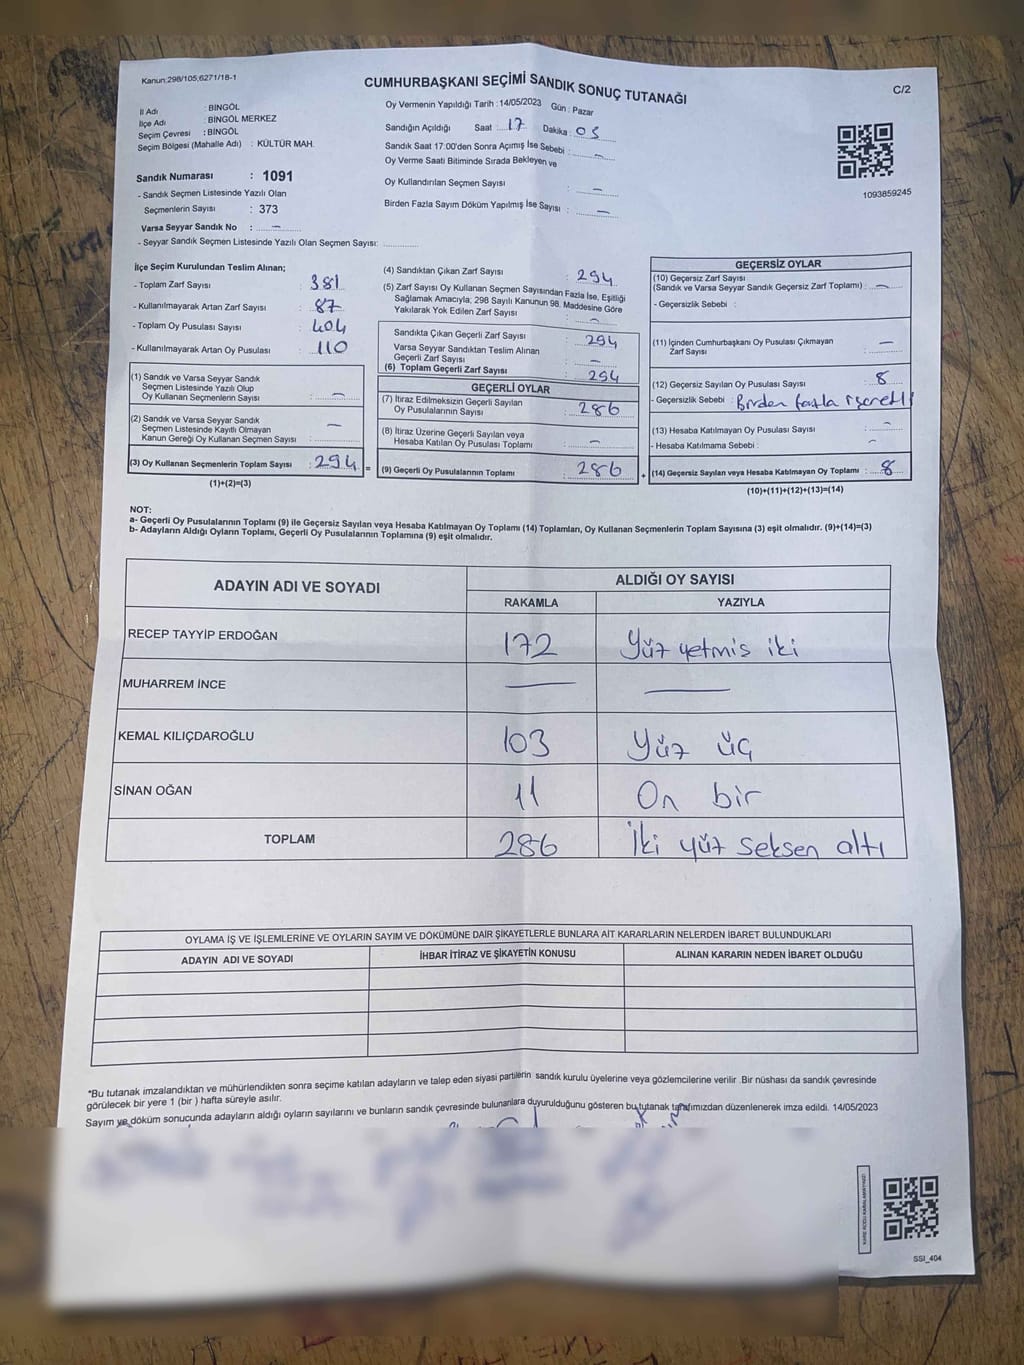 Kanun:298/105,6271/18-1
CUMHURBAŞKANI SEÇİMİ SANDIK SONUÇ TUTANAĞI
C/2
İl Adı : BİNGÖL
İlçe Adı : BİNGÖL MERKEZ
Seçim Çevresi : BİNGÖL
Seçim Bölgesi (Mahalle Adı) : KÜLTÜR MAH.
Oy Vermenin Yapıldığı Tarih : 14/05/2023 Gün : Pazar
Sandığın Açıldığı Saat : 17 Dakika : 05
Sandık Saat 17:00'den Sonra Açımış İse Sebebi : —
Oy Verme Saati Bitiminde Sırada Bekleyen ve
Oy Kullandırılan Seçmen Sayısı : —
Birden Fazla Sayım Döküm Yapılmış İse Sayısı : —
1093859245
Sandık Numarası : 1091
- Sandık Seçmen Listesinde Yazılı Olan
Seçmenlerin Sayısı : 373
Varsa Seyyar Sandık No : —
- Seyyar Sandık Seçmen Listesinde Yazılı Olan Seçmen Sayısı:
İlçe Seçim Kurulundan Teslim Alınan;
- Toplam Zarf Sayısı : 381
- Kullanılmayarak Artan Zarf Sayısı : 87
- Toplam Oy Pusulası Sayısı : 404
- Kullanılmayarak Artan Oy Pusulası : 110
(1) Sandık ve Varsa Seyyar Sandık
Seçmen Listesinde Yazılı Olup
Oy Kullanan Seçmenlerin Sayısı : —
(2) Sandık ve Varsa Seyyar Sandık
Seçmen Listesinde Kayıtlı Olmayan
Kanun Gereği Oy Kullanan Seçmen Sayısı : —
(3) Oy Kullanan Seçmenlerin Toplam Sayısı : 294 =
(1)+(2)=(3)
(4) Sandıktan Çıkan Zarf Sayısı : 294
(5) Zarf Sayısı Oy Kullanan Seçmen Sayısından Fazla İse, Eşitliği
Sağlamak Amacıyla, 298 Sayılı Kanunun 98. Maddesine Göre
Yakılarak Yok Edilen Zarf Sayısı : —
Sandıkta Çıkan Geçerli Zarf Sayısı : 294
Varsa Seyyar Sandıktan Teslim Alınan
Geçerli Zarf Sayısı : —
(6) Toplam Geçerli Zarf Sayısı : 294
GEÇERLİ OYLAR
(7) İtiraz Edilmeksizin Geçerli Sayılan
Oy Pusulalarının Sayısı : 286
(8) İtiraz Üzerine Geçerli Sayılan veya
Hesaba Katılan Oy Pusulası Toplamı : —
(9) Geçerli Oy Pusulalarının Toplamı : 286 +
GEÇERSİZ OYLAR
(10) Geçersiz Zarf Sayısı
(Sandık ve Varsa Seyyar Sandık Geçersiz Zarf Toplamı) : —
- Geçersizlik Sebebi :
(11) İçinden Cumhurbaşkanı Oy Pusulası Çıkmayan
Zarf Sayısı : —
(12) Geçersiz Sayılan Oy Pusulası Sayısı : 8
- Geçersizlik Sebebi : Birden fazla işaretli
(13) Hesaba Katılmayan Oy Pusulası Sayısı : —
- Hesaba Katılmama Sebebi : —
(14) Geçersiz Sayılan veya Hesaba Katılmayan Oy Toplamı : 8
(10)+(11)+(12)+(13)=(14)
NOT:
a- Geçerli Oy Pusulalarının Toplamı (9) ile Geçersiz Sayılan veya Hesaba Katılmayan Oy Toplamı (14) Toplamları, Oy Kullanan Seçmenlerin Toplam Sayısına (3) eşit olmalıdır. (9)+(14)=(3)
b- Adayların Aldığı Oyların Toplamı, Geçerli Oy Pusulalarının Toplamına (9) eşit olmalıdır.
ADAYIN ADI VE SOYADI ALDIĞI OY SAYISI
RAKAMLA YAZIYLA
RECEP TAYYİP ERDOĞAN 172 Yüz yetmis iki
MUHARREM İNCE — —
KEMAL KILIÇDAROĞLU 103 Yüz üç
SİNAN OĞAN 11 On bir
TOPLAM 286 İki yüz seksen altı
OYLAMA İŞ VE İŞLEMLERİNE VE OYLARIN SAYIM VE DÖKÜMÜNE DAİR ŞİKAYETLERLE BUNLARA AİT KARARLARIN NELERDEN İBARET BULUNDUKLARI
ADAYIN ADI VE SOYADI İHBAR İTİRAZ VE ŞİKAYETİN KONUSU ALINAN KARARIN NEDEN İBARET OLDUĞU
*Bu tutanak imzalandıktan ve mühürlendikten sonra seçime katılan adayların ve talep eden siyasi partilerin sandık kurulu üyelerine veya gözlemcilerine verilir .Bir nüshası da sandık çevresinde
görülecek bir yere 1 (bir ) hafta süreyle asılır.
Sayım ve döküm sonucunda adayların aldığı oyların sayılarını ve bunların sandık çevresinde bulunanlara duyurulduğunu gösteren bu tutanak tarafımızdan düzenlenerek imza edildi. 14/05/2023
SSI_404